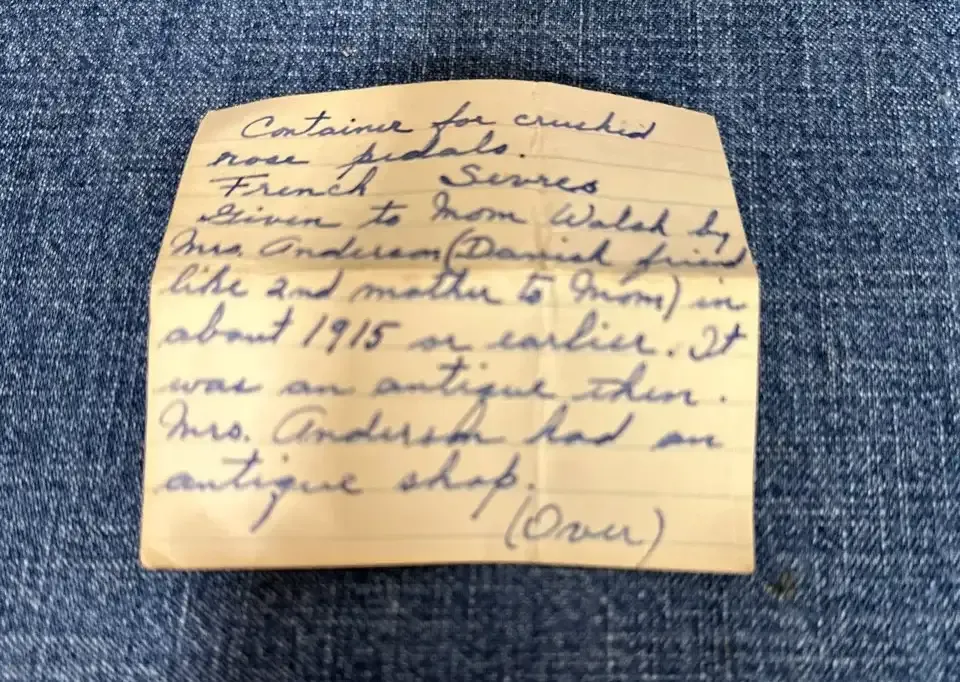 Container for crushed
rose pedals.
French Sevres
Given to Mom Walsh by
Mrs. Anderson (Danish friend
like 2nd mother to Mom) in
about 1915 or earlier. It
was an antique then.
Mrs. Anderson had an
antique shop.
(Over)